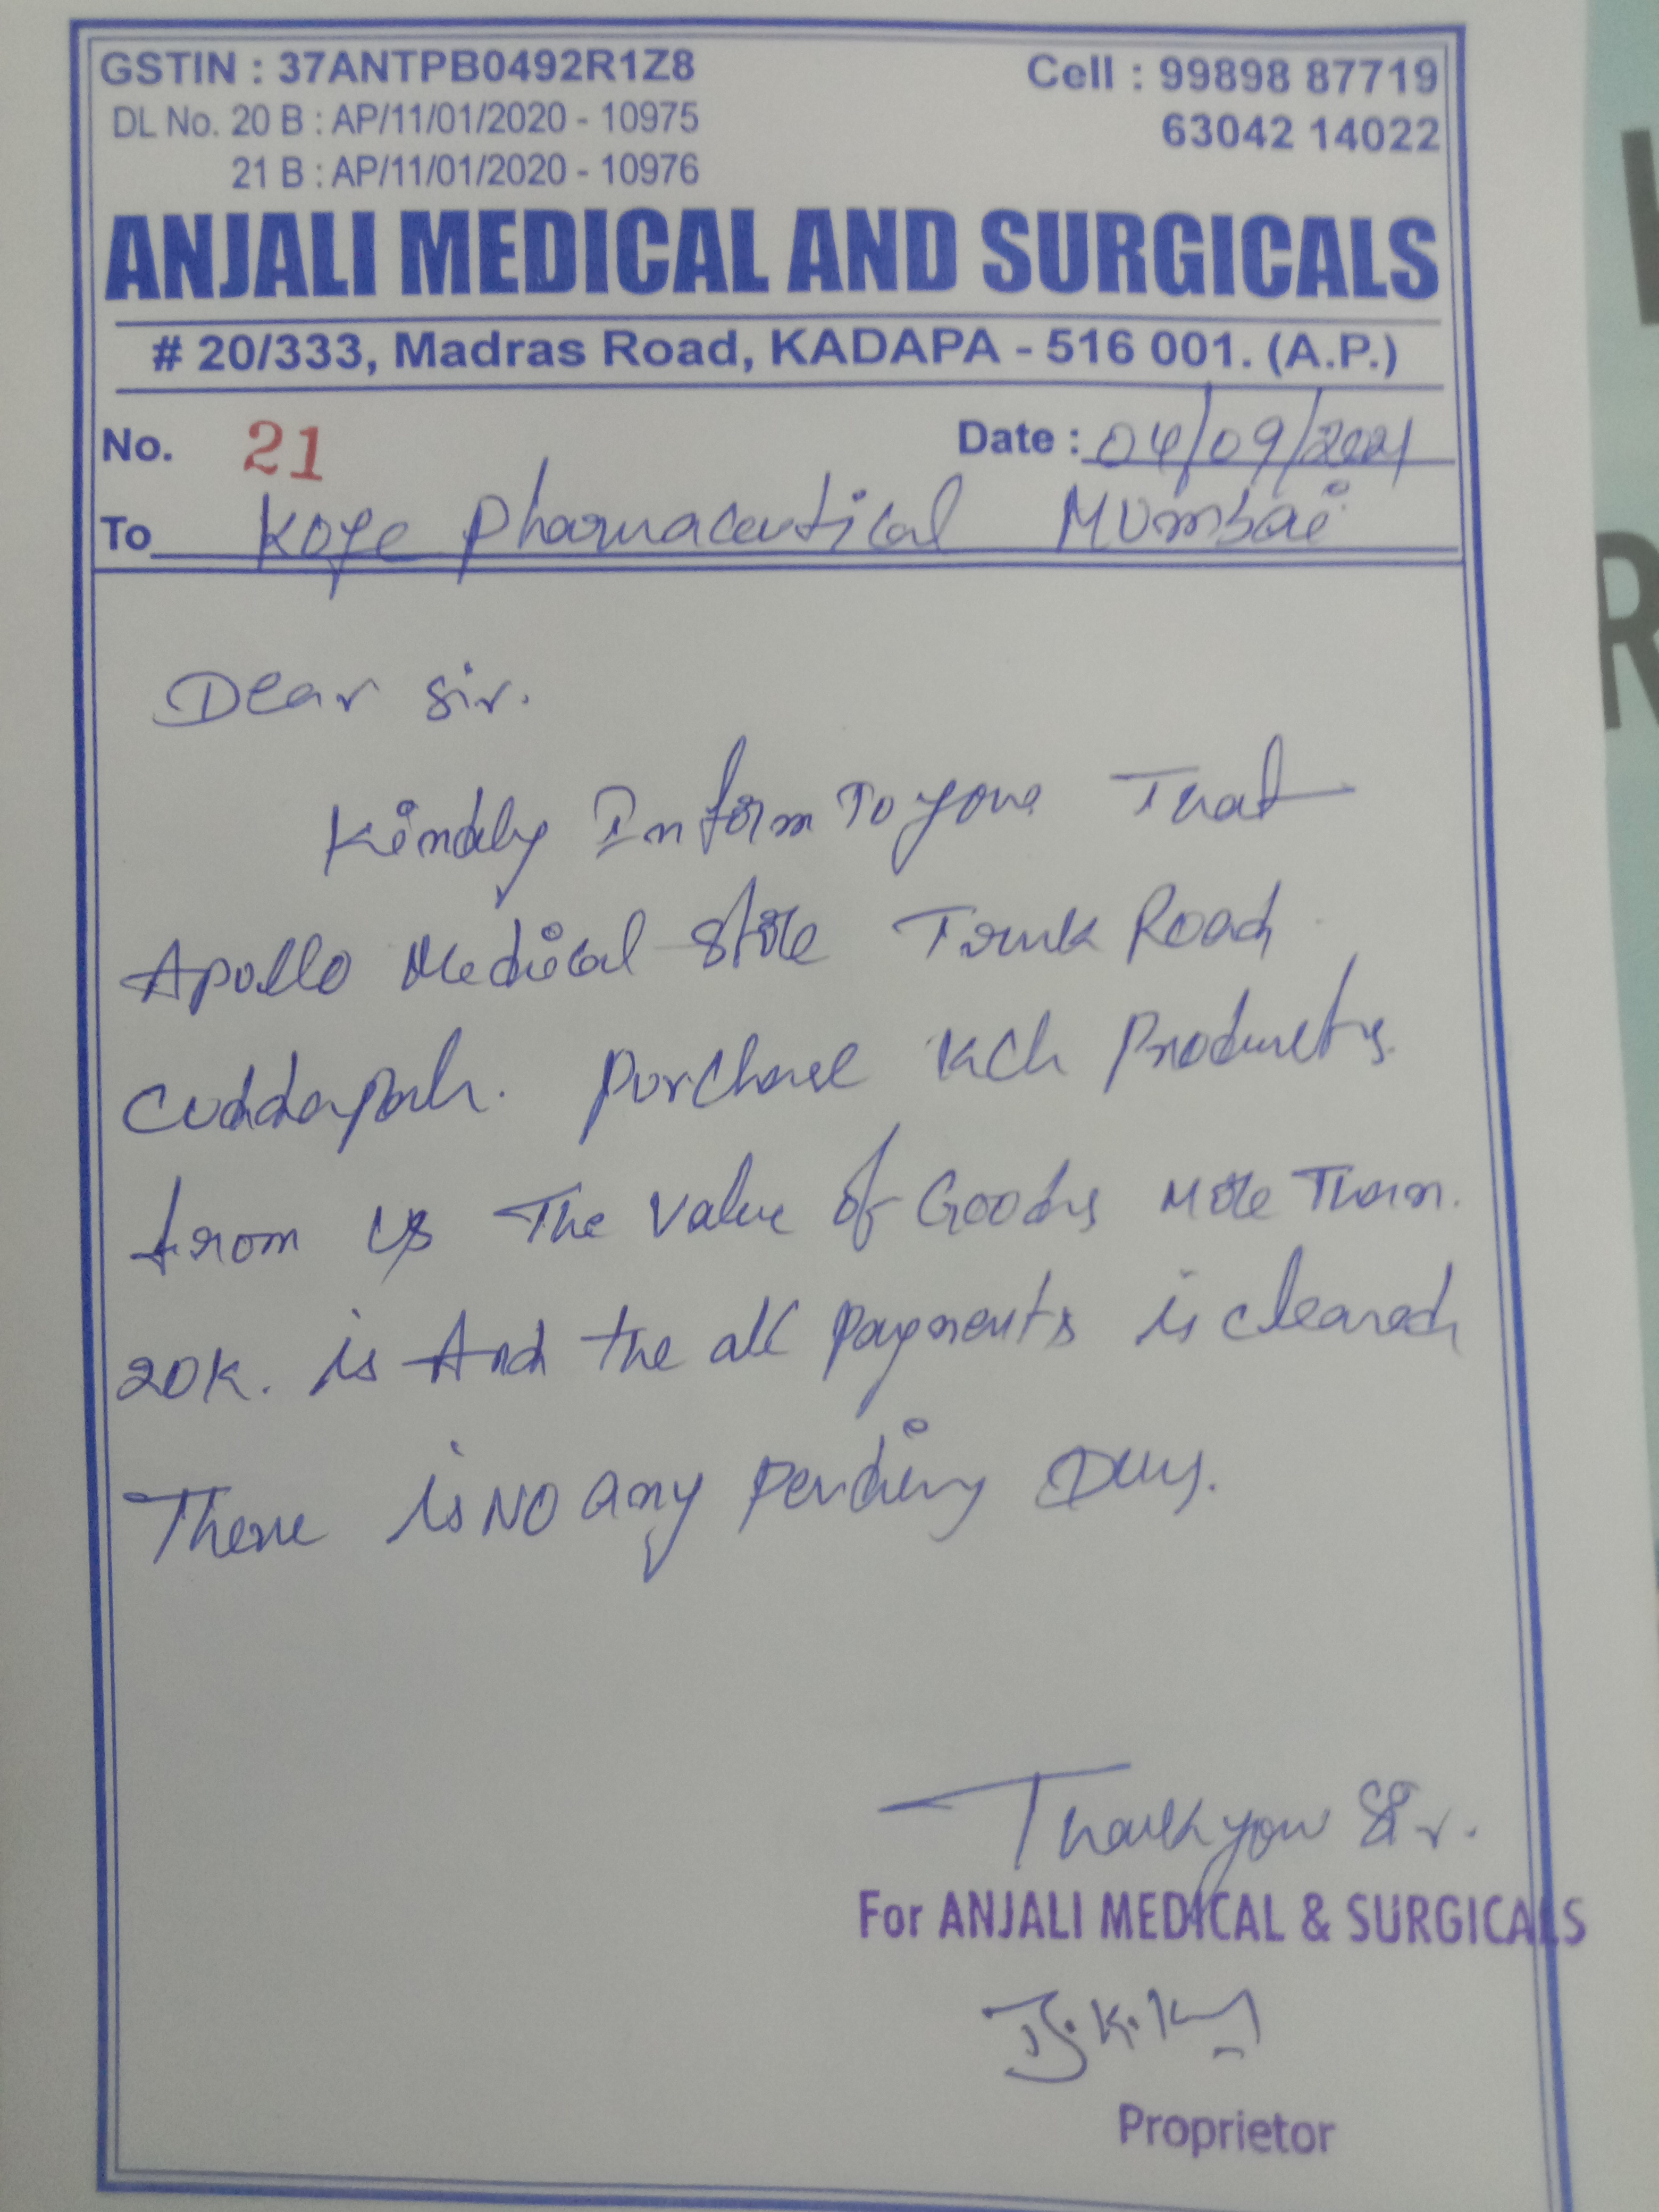 GSTIN : 37ANTPB0492R1Z8
Cell : 99898 87719
DL No. 20 B : AP/11/01/2020 - 10975
63042 14022
21 B : AP/11/01/2020 - 10976
ANJALI MEDICAL AND SURGICALS
# 20/333, Madras Road, KADAPA - 516 001. (A.P.)
No. 21
Date : 04/09/2021
To Koye Pharmaceutical Mumbai
Dear Sir.
Kindly Inform To your That
Apollo Medical Store Trunk Road
Cuddapah. Purchase Products.
from us The Value of Goods More Than.
20K. is And the all payments is cleared
There is NO any pending Dues.
Thank you Sir.
For ANJALI MEDICAL & SURGICALS
Proprietor